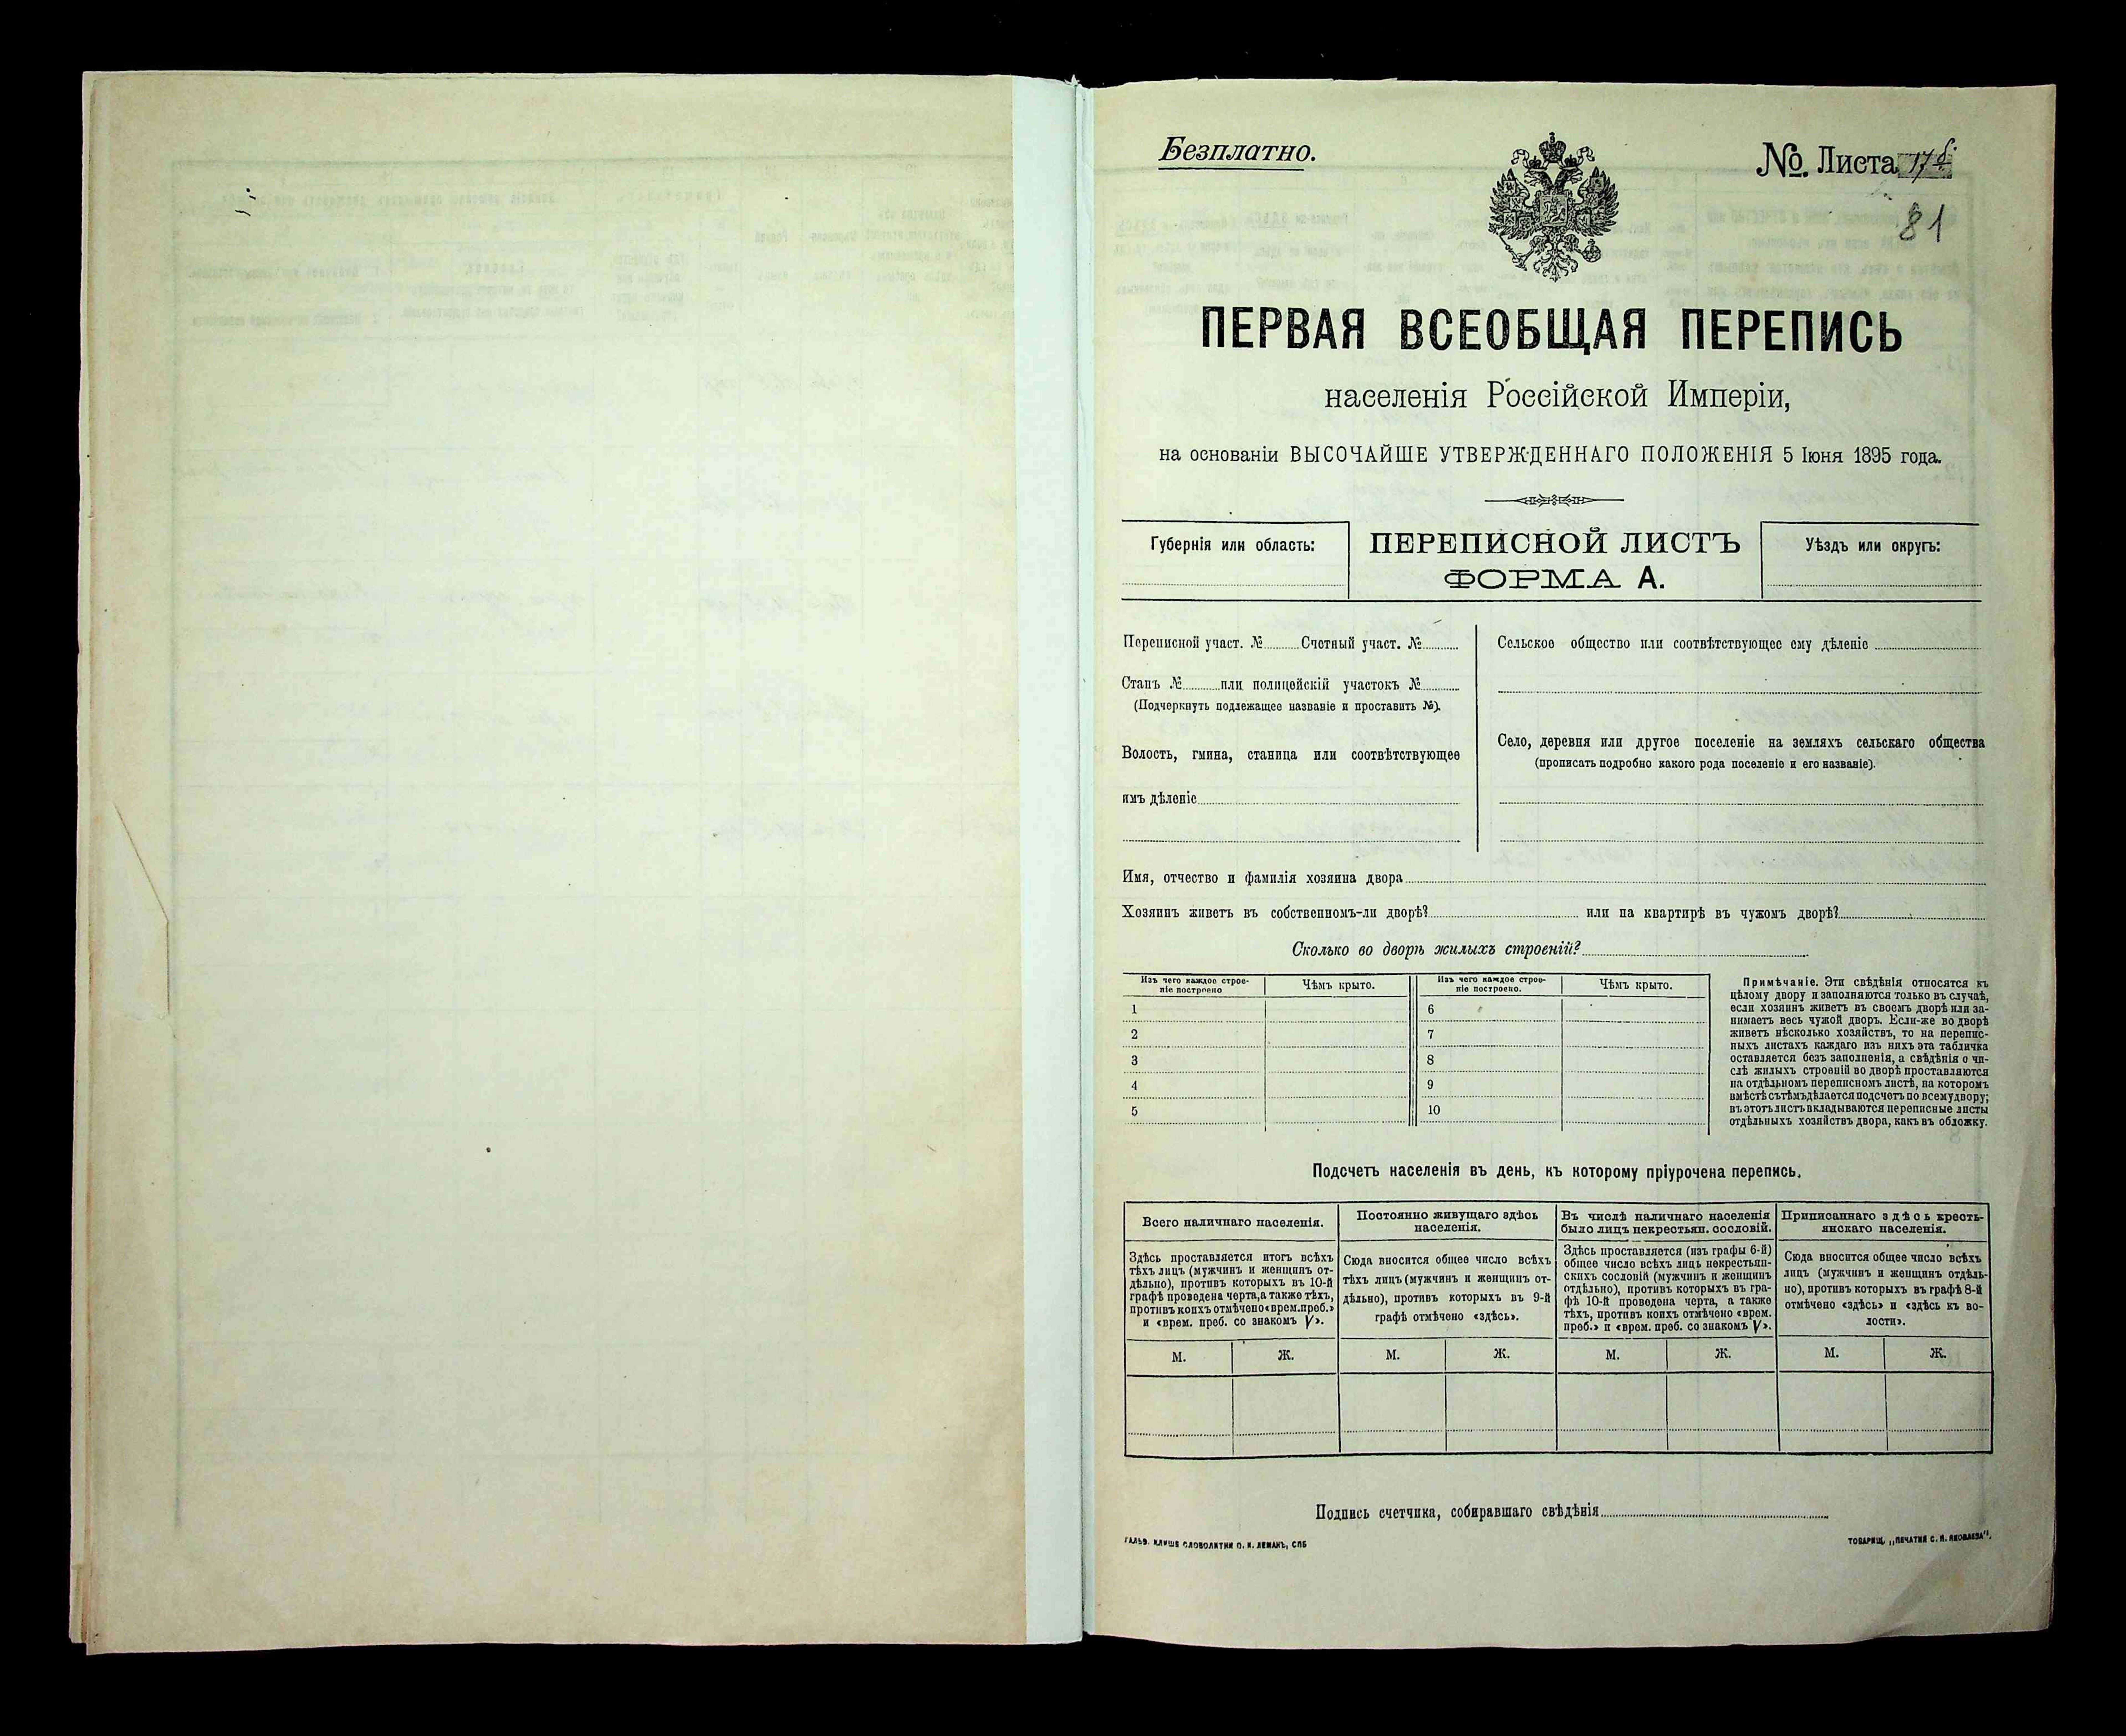 Безплатно.
№. Листа 17
81
ПЕРВАЯ ВСЕОБЩАЯ ПЕРЕПИСЬ
населенія Россійской Имперіи,
на основаніи ВЫСОЧАЙШЕ УТВЕРЖДЕННАГО ПОЛОЖЕНІЯ 5 Іюня 1895 года.
Губернія или область:
ПЕРЕПИСНОЙ ЛИСТЪ
ФОРМА А.
Уѣздъ или округъ:
Переписной участ. № Счетный участ. №
Станъ № или полицейскій участокъ №
(Подчеркнуть подлежащее названіе и проставить №).
Волость, гмина, станица или соотвѣтствующее
имъ дѣленіе
Сельское общество или соотвѣтствующее ему дѣленіе
Село, деревня или другое поселеніе на земляхъ сельскаго общества
(прописать подробно какого рода поселеніе и его названіе).
Имя, отчество и фамилія хозяина двора
Хозяинъ живетъ въ собственномъ-ли дворѣ? или на квартирѣ въ чужомъ дворѣ?
Сколько во дворѣ жилыхъ строеній?
Изъ чего каждое строе-
ніе построено
Чѣмъ крыто.
Изъ чего каждое строе-
ніе построено.
Чѣмъ крыто.
1
2
3
4
5
6
7
8
9
10
Примѣчаніе. Эти свѣдѣнія относятся къ
цѣлому двору и заполняются только въ случаѣ,
если хозяинъ живетъ въ своемъ дворѣ или за-
нимаетъ весь чужой дворъ. Если-же во дворѣ
живетъ нѣсколько хозяйствъ, то на перепис-
ныхъ листахъ каждаго изъ нихъ эта табличка
оставляется безъ заполненія, а свѣдѣнія о чи-
слѣ жилыхъ строеній во дворѣ проставляются
на отдѣльномъ переписномъ листѣ, на которомъ
вмѣстѣ съ тѣмъ дѣлается подсчетъ по всему двору;
въ этотъ листъ вкладываются переписные листы
отдѣльныхъ хозяйствъ двора, какъ въ обложку.
Подсчетъ населенія въ день, къ которому пріурочена перепись.
Всего наличнаго населенія.
Здѣсь проставляется итогъ всѣхъ
тѣхъ лицъ (мужчинъ и женщинъ от-
дѣльно), противъ которыхъ въ 10-й
графѣ проведена черта, а также тѣхъ,
противъ коихъ отмѣчено «врем. преб.»
и «врем. преб. со знакомъ V».
Постоянно живущаго здѣсь
населенія.
Сюда вносится общее число всѣхъ
тѣхъ лицъ (мужчинъ и женщинъ от-
дѣльно), противъ которыхъ въ 9-й
графѣ отмѣчено «здѣсь».
Въ числѣ наличнаго населенія
было лицъ некрестьян. сословій.
Здѣсь проставляется (изъ графы 6-й)
общее число всѣхъ лицъ некрестьян-
скихъ сословій (мужчинъ и женщинъ
отдѣльно), противъ которыхъ въ гра-
фѣ 10-й проведена черта, а также
тѣхъ, противъ коихъ отмѣчено «врем.
преб.» и «врем. преб. со знакомъ V».
Приписаннаго здѣсь кресть-
янскаго населенія.
Сюда вносится общее число всѣхъ
лицъ (мужчинъ и женщинъ отдѣль-
но), противъ которыхъ въ графѣ 8-й
отмѣчено «здѣсь» и «здѣсь къ во-
лости».
М. Ж. М. Ж. М. Ж. М. Ж.
Подпись счетчика, собиравшаго свѣдѣнія
ГАЛЬВ. КЛИШЕ СЛОВОЛИТНИ О. И. ЛЕМАНЪ, СПБ
ТОВАРИЩ. „ПЕЧАТНЯ С. П. ЯКОВЛЕВА".